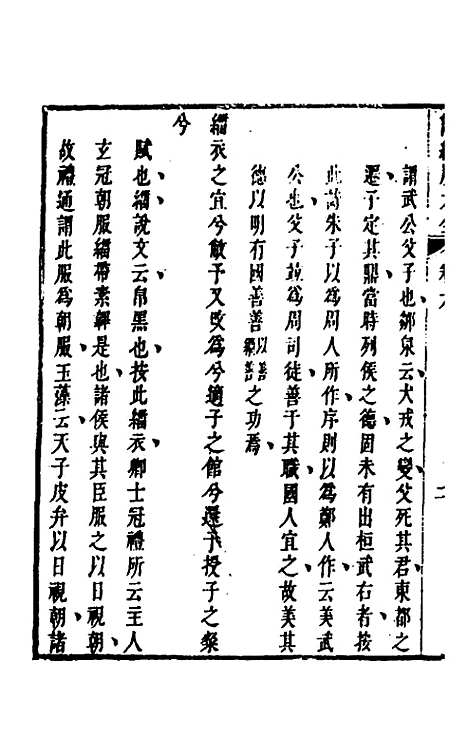 謂武公父子也鄒泉云犬戎之變父死其君東都之
遷子定其鼎當時列侯之德固未有出桓武右者按
此詩朱子以為周人所作序則以為鄭人作云美武
公也父子並為周司徒善于其職國人宜之故美其
德以明有國善善以善續善之功焉
緇衣之宜兮敝予又改為兮適子之館兮還予授子之粲
兮
賦也緇說文云帛黑也按此緇衣卿士冠禮所云主人
玄冠朝服緇帶素韠是也諸侯與其臣服之以日視朝
故禮通謂此服為朝服玉藻云天子皮弁以日視朝諸